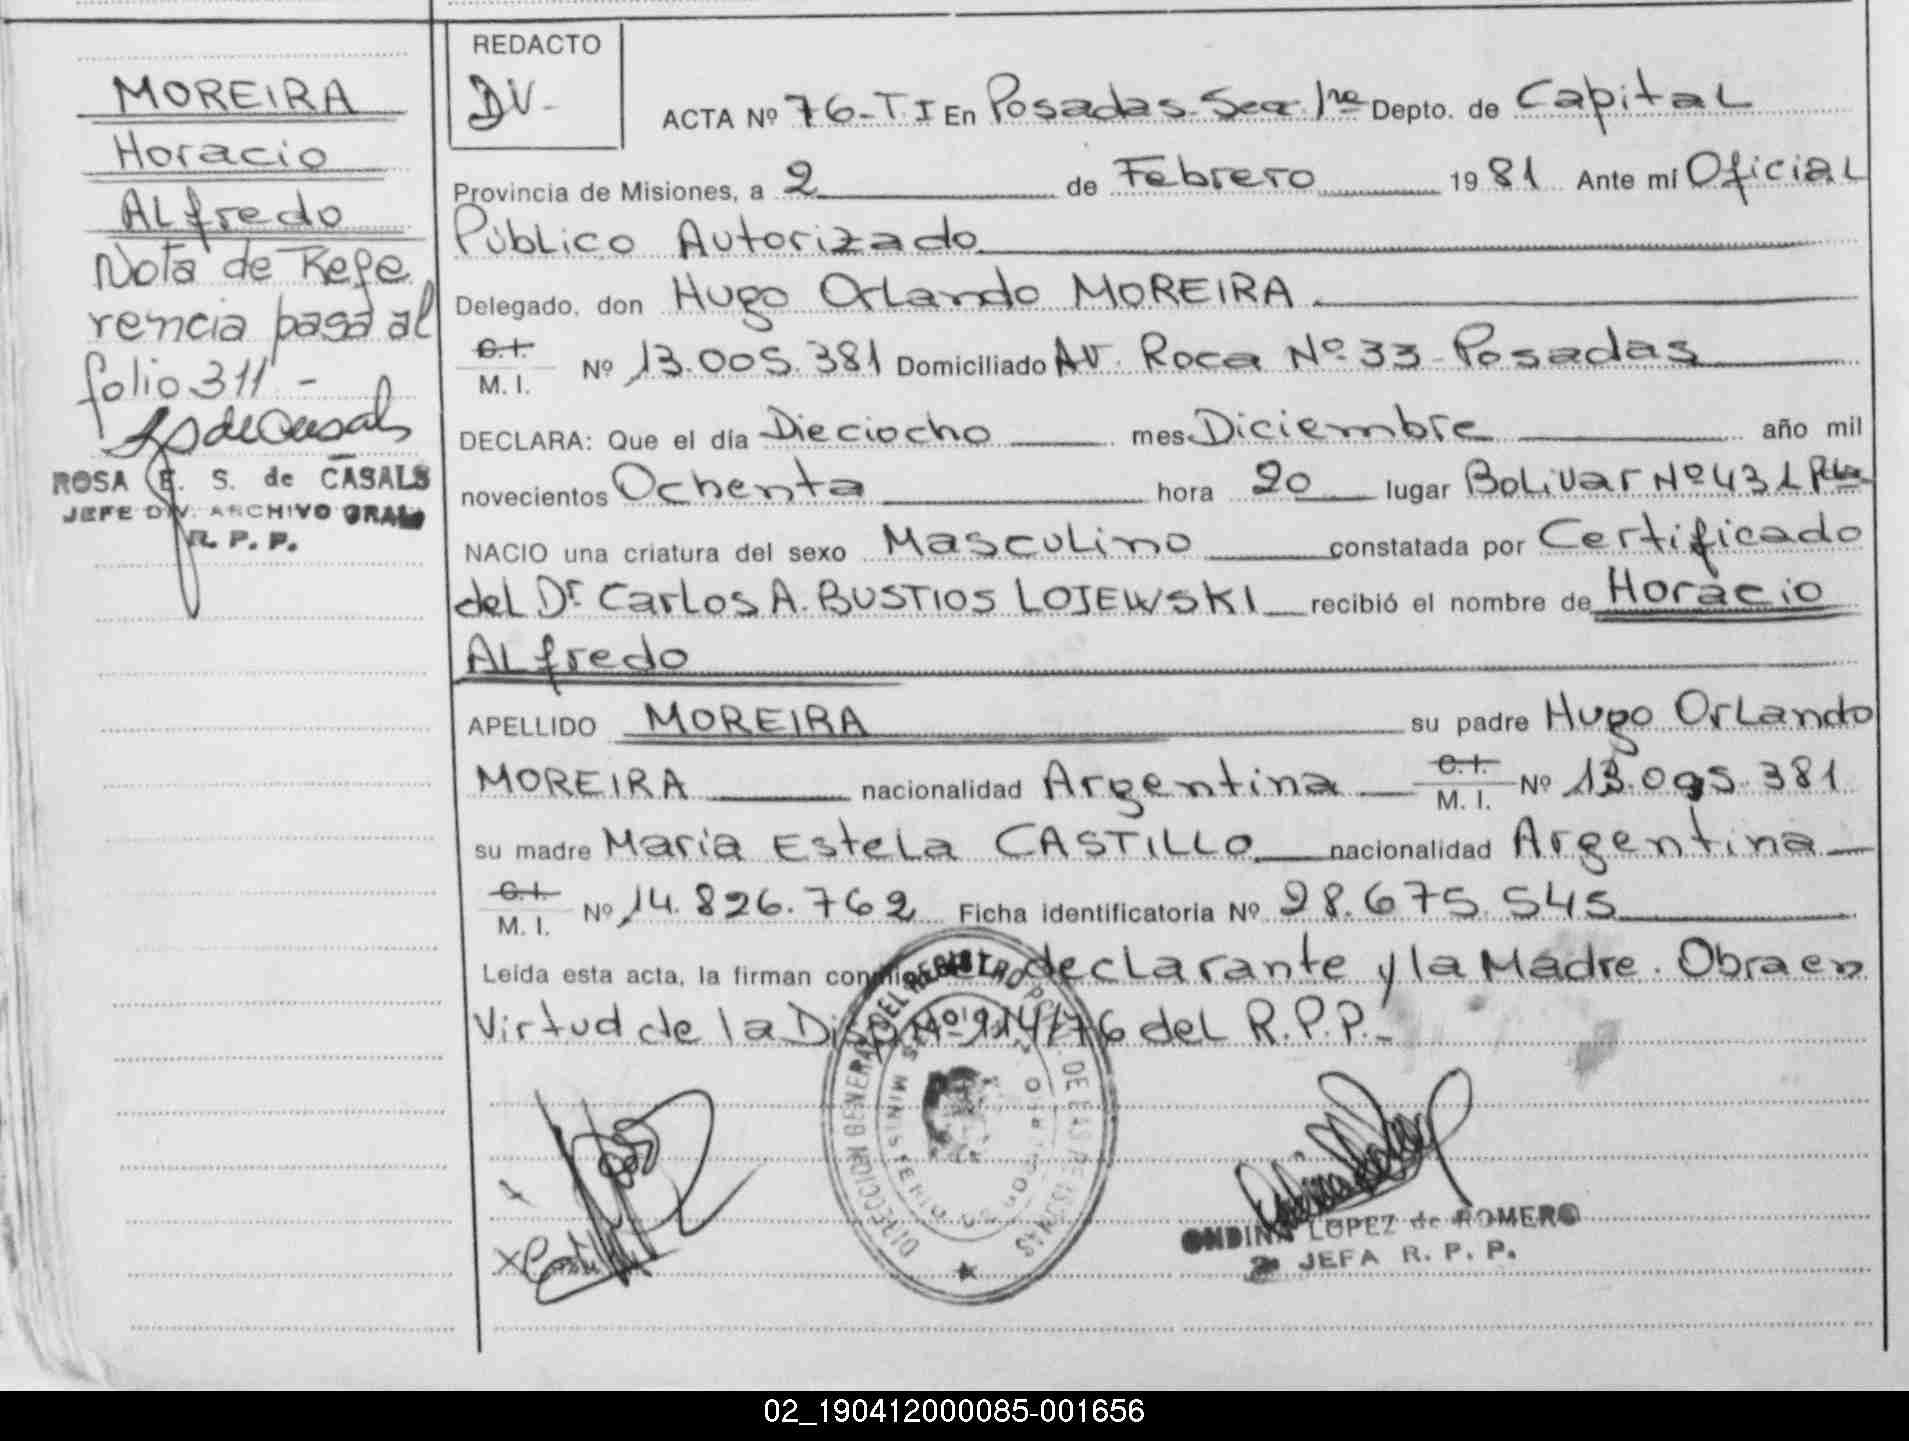 MOREIRA
Horacio
ALfredo
Nota de Refe
rencia pasa al
folio 311 -
ROSA E. S. de CASALS
JEFE DIV. ARCHIVO GRAL
R. P. P.
REDACTO
DV-
ACTA Nº 76-TI En Posadas Sec. 1ra Depto. de CapitaL
Provincia de Misiones, a 2 de Febrero 1981 Ante mí OficiaL
PúbLico Autorizado
Delegado, don Hugo OrLando MOREIRA
C.I.
M. I. Nº 13.005.381 Domiciliado Av. Roca Nº 33 Posadas
DECLARA: Que el día Dieciocho mes Diciembre año mil
novecientos Ochenta hora 20 lugar BoLivar Nº 431
NACIO una criatura del sexo MascuLino constatada por Certificado
deL Dr. CarLos A. BUSTIOS LOJEWSKI recibió el nombre de Horacio
ALfredo
APELLIDO MOREIRA su padre Hugo OrLando
MOREIRA nacionalidad Argentina C.I. M. I. Nº 13.005.381
su madre María EsteLa CASTILLO nacionalidad Argentina
C.I.
M. I. Nº 14.826.762 Ficha identificatoria Nº 28.675.545
Leída esta acta, la firman conmigo decLarante y la Madre. Obra en
Virtud de la Disp. Nº 114/76 del R.P.P.-
DIRECCION GENERAL DEL REGISTRO PCIAL. DE LAS PERSONAS
MINISTERIO DE GOBIERNO
ONDINA LOPEZ de ROMERO
2ª JEFA R. P. P.
02_190412000085-001656